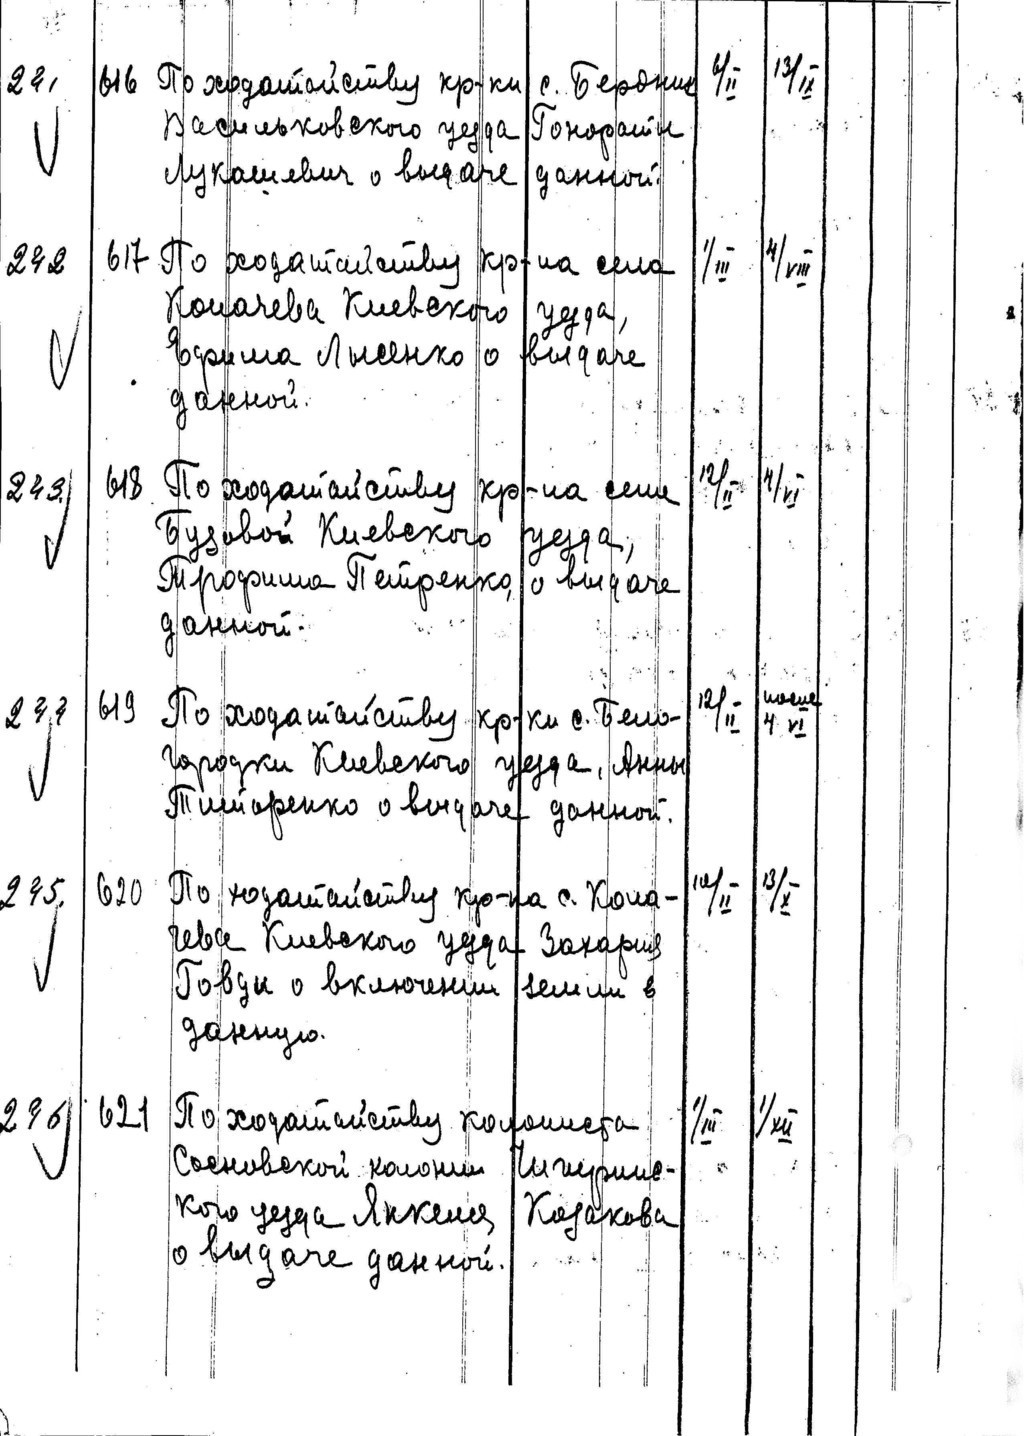 241 616 По ходатайству кр-ки с. Бердник 6/II 13/IX
Васильковского уезда Гонораты
Лукашевич о выдаче данной.
242 617 По ходатайству кр-на села 1/III 4/VIII
Копачева Киевского уезда,
Ефима Лысенко о выдаче
данной.
243. 618 По ходатайству кр-на села 12/II 4/VI
Бузовой Киевского уезда,
Трофима Петренко, о выдаче
данной.
244 619 По ходатайству кр-ки с. Бело- 12/II после
городки Киевского уезда, Анны 4 VI
Титаренко о выдаче данной.
245. 620 По ходатайству кр-на с. Копа- 12/II 13/X
чева Киевского уезда Захария
Говды о включении земли в
данную.
246 621 По ходатайству колониста 1/III 1/XII
Сосновской колонии Чигирин-
кого уезда Янкеля Казакова
о выдаче данной.